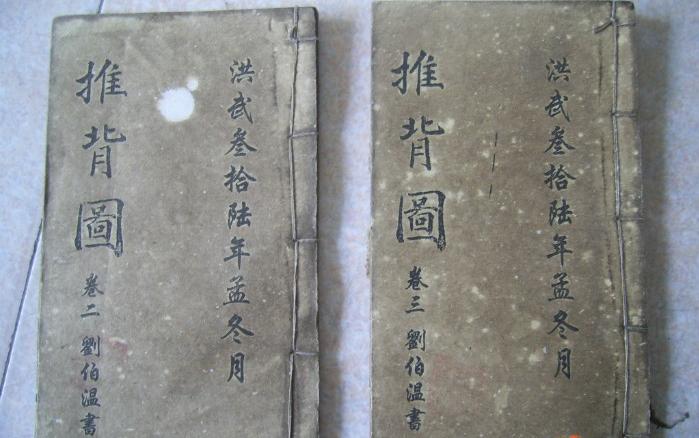 洪武叁拾陆年孟冬月
推背圖
卷三 劉伯温書
洪武叁拾陆年孟冬月
推背圖
卷二 劉伯温書